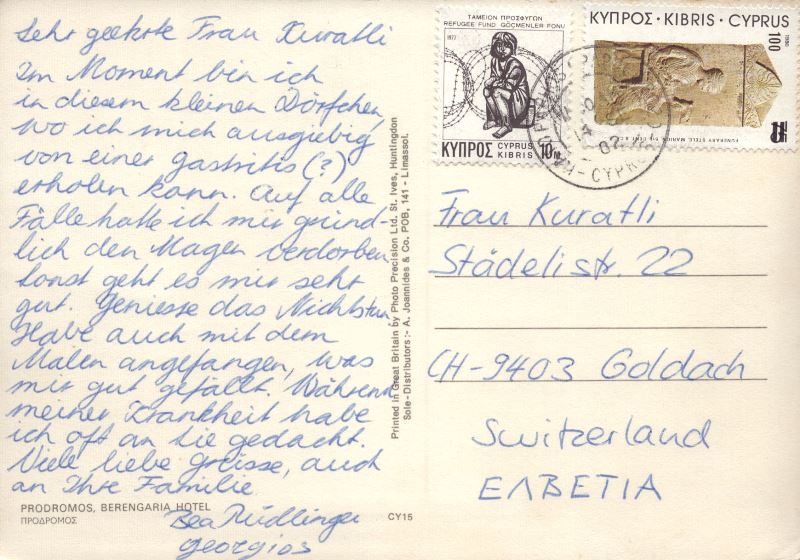 Sehr geehrte Frau Kuratli
Im Moment bin ich
in diesem kleinen Dörfchen,
wo ich mich ausgiebig
von einer Gastritis (?)
erholen kann. Auf alle
Fälle hatte ich mir gründ-
lich den Magen verdorben.
Sonst geht es mir sehr
gut. Geniesse das Nichtstun.
Habe auch mit dem
Malen angefangen, was
mir gut gefällt. Während
meiner Krankheit habe
ich oft an Sie gedacht.
Viele liebe Grüsse, auch
an Ihre Familie
Bea Rüdlinger
Georgios
PRODROMOS, BERENGARIA HOTEL
ΠΡΟΔΡΟΜΟΣ
CY15
Printed in Great Britain by Photo Precision Ltd. St. Ives, Huntingdon
Sole-Distributors:- A. Joannides & Co. POB, 141 - Limassol.
ΤΑΜΕΙΟΝ ΠΡΟΣΦΥΓΩΝ
REFUGEE FUND GÖÇMENLER FONU
1977
ΚΥΠΡΟΣ CYPRUS KIBRIS 10M
ΚΥΠΡΟΣ · KIBRIS · CYPRUS
100
1980
FUNERARY STELE, MARION
CYPRUS
Frau Kuratli
Städelistr. 22
CH-9403 Goldach
Switzerland
ΕΛΒΕΤΙΑ